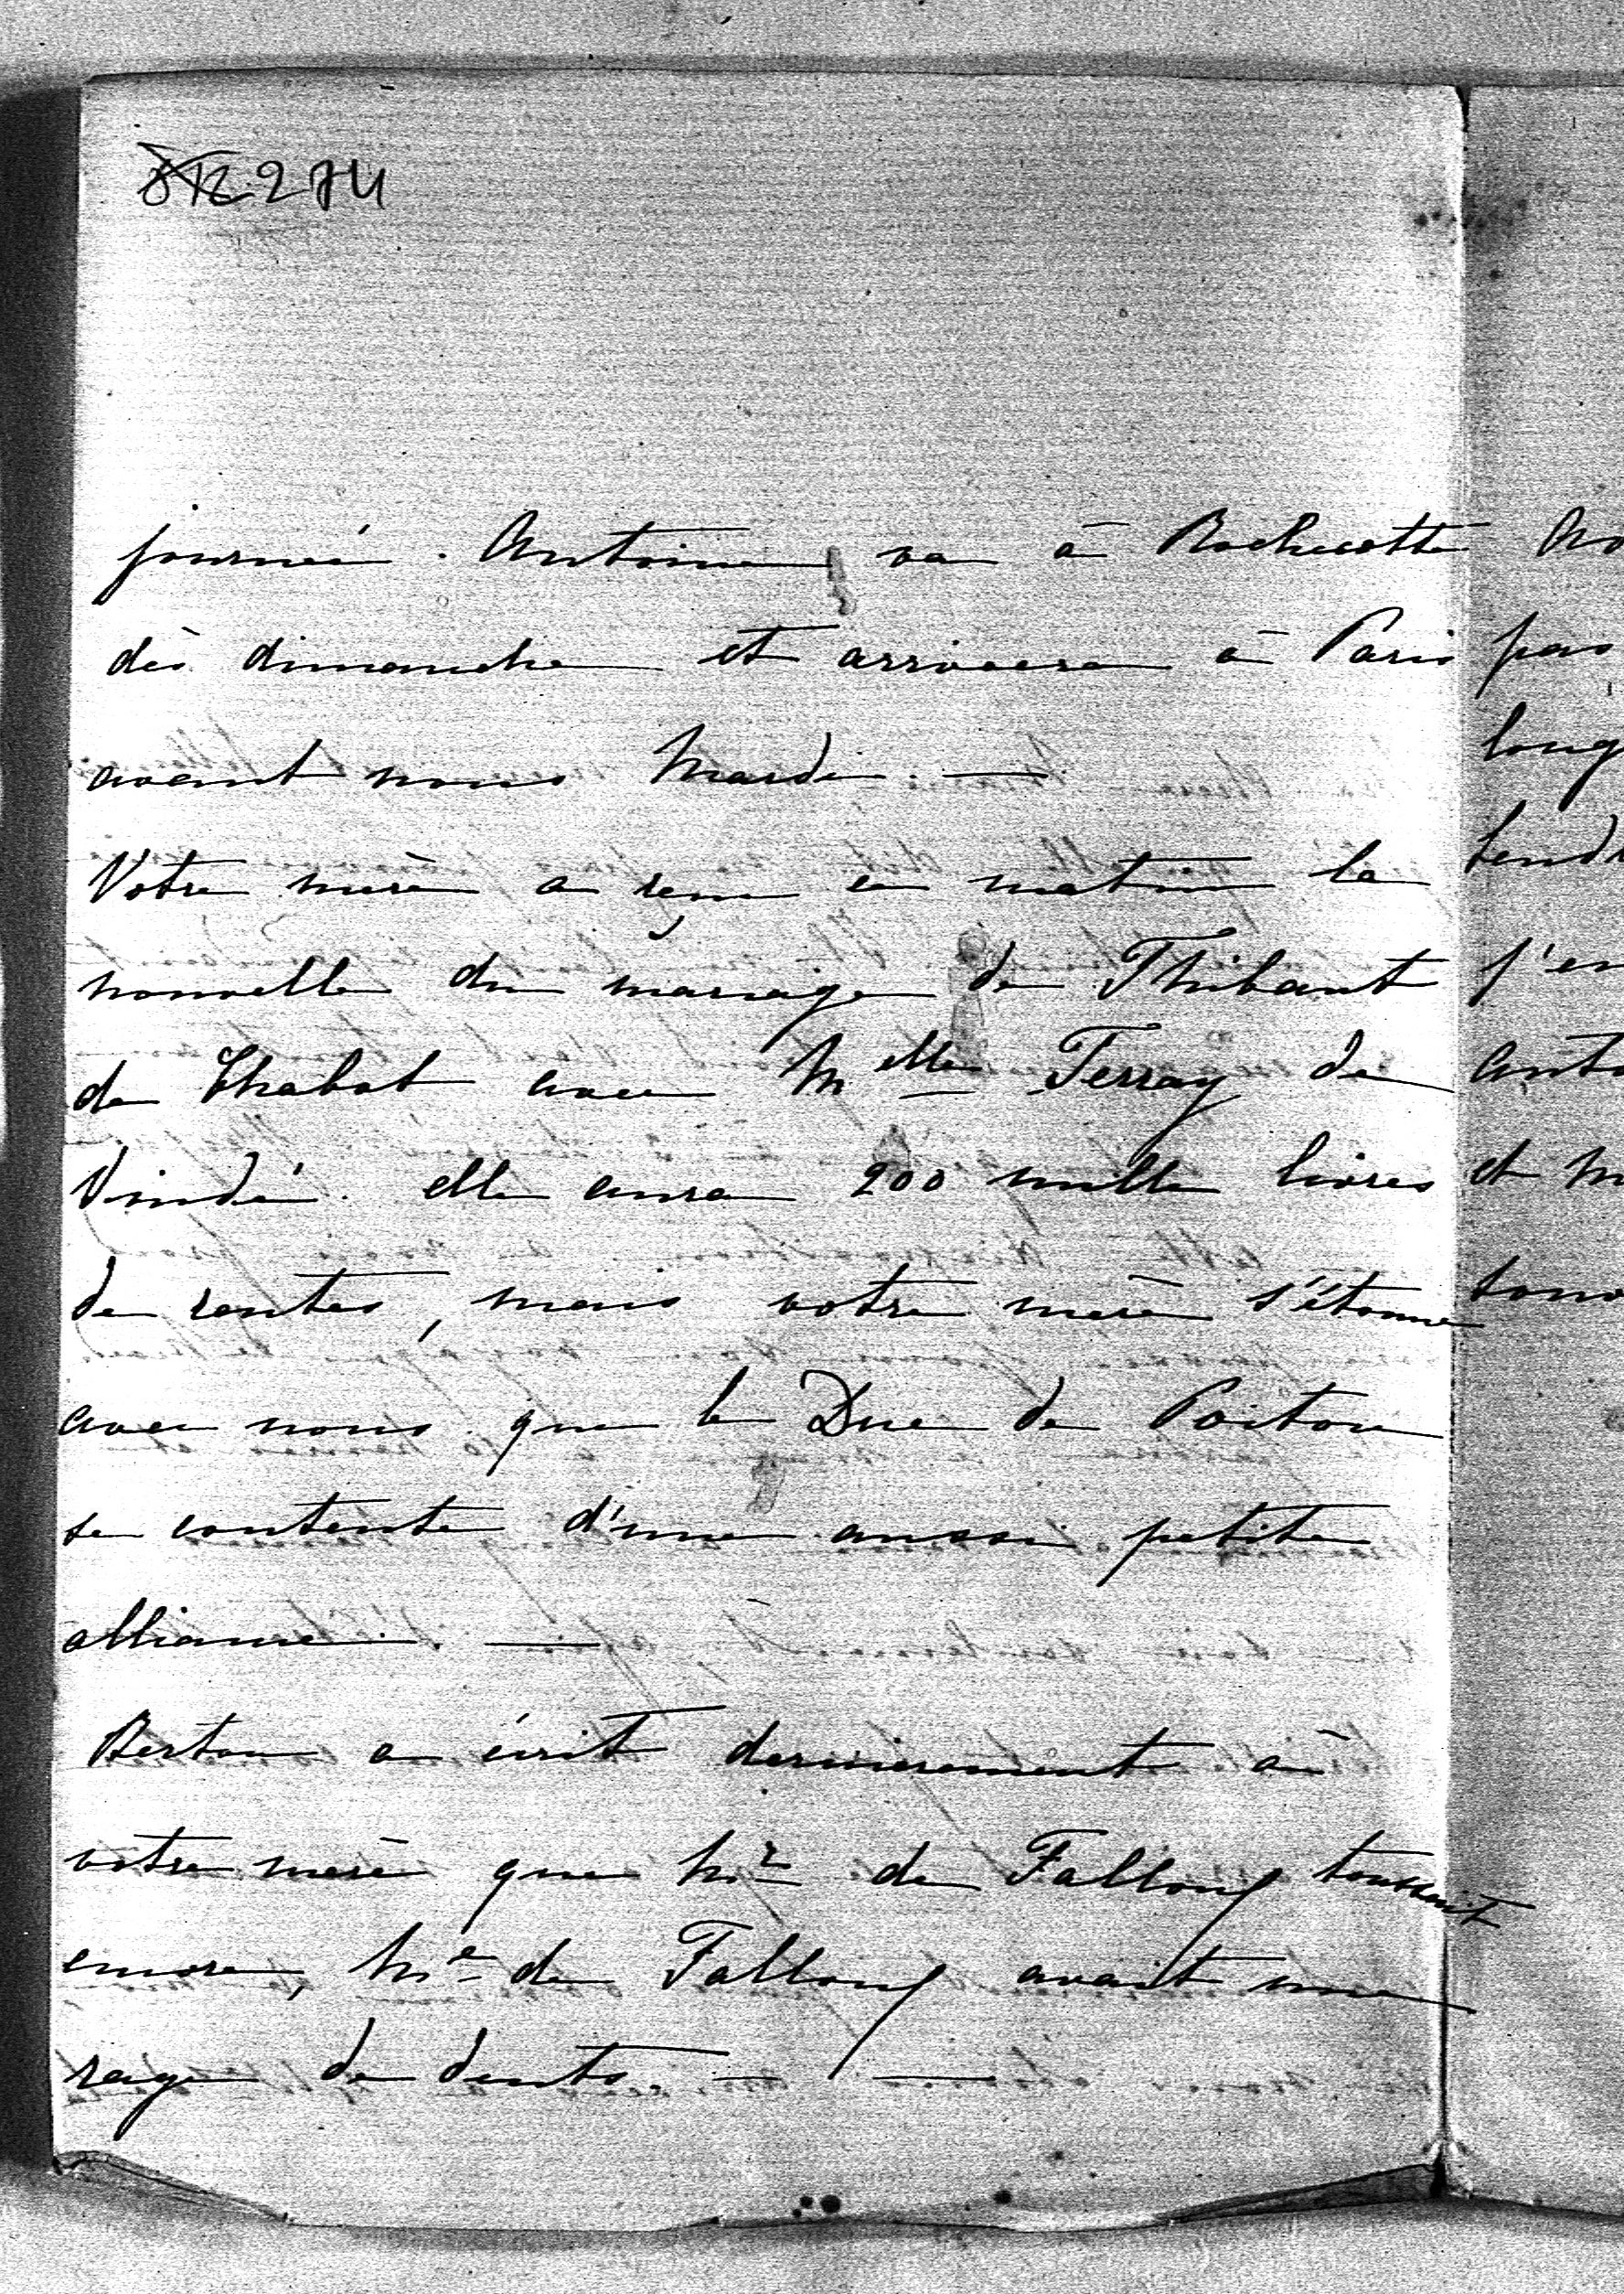 274
journée. Antoine va à Rochecotte
dès dimanche et arrivera à Paris
avant nous Mardi. —
Votre mère a reçu ce matin la
nouvelle du mariage de Thibaut
de Chabot avec Melle Terray de
Vindé. elle aura 200 mille livres
de rentes, mais votre mère s'étonne
avec nous que le Duc de
se contente d'une aussi petite
alliance. —
Bertou a écrit dernièrement à
votre mère que Mr de Falloux toussait
encore, Me de Falloux avait une
rage de dents. — —
pas
long
tend
j'en
et